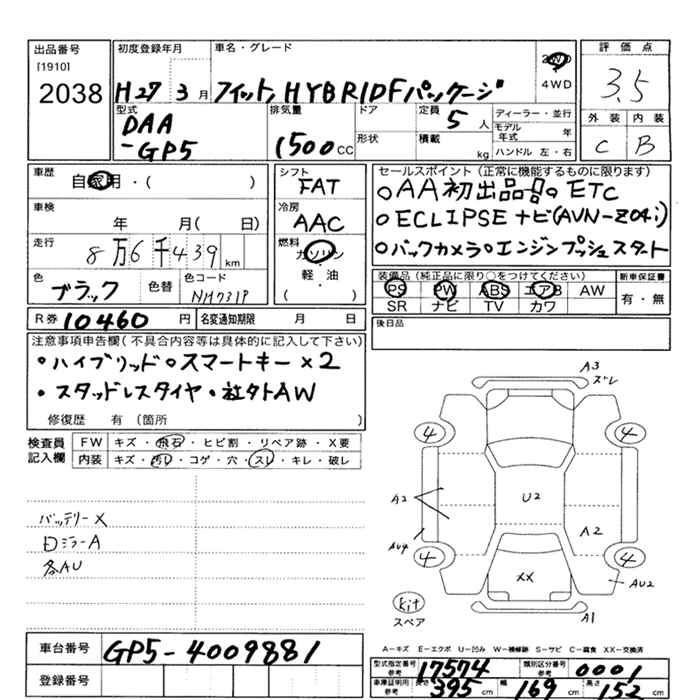 出品番号 初度登録年月 車名・グレード 評価点
[1910]
2038
H27 3月 フィット HYBRID Fパッケージ 2WD
4WD
3.5
型式 排気量 ドア 定員 ディーラー・並行 外装 内装
DAA 1500cc 5人 モデル年式 年
-GP5 形状 積載 kg ハンドル 左・右 C B
車歴 シフト セールスポイント(正常に機能するものに限ります)
自家用・( ) FAT ○AA初出品号○ETC
車検 冷房 ○ECLIPSEナビ(AVN-Z04i)
年 月( 日) AAC
走行 燃料 ○バックカメラ○エンジンプッシュスタート
8万6千439km ガソリン
軽・油
( )
色 色替 色コード 装備品(純正品に限り○をつけてください) 新車保証書
ブラック NH731P PS PW ABS エアB AW 有・無
SR ナビ TV カワ
R券 10460円 名変通知期限 月 日 後日品
注意事項申告欄(不具合内容等は具体的に記入して下さい)
・ハイブリッド○スマートキー×2
・スタッドレスタイヤ・社外AW
修復歴 有 (箇所 )
検査員 FW キズ・飛石・ヒビ割・リペア跡・X要
記入欄 内装 キズ・汚レ・コゲ・穴・スレ・キレ・破レ
A3
ズレ
4 4
A2 U2
A2
AU4
4 4
XX AU2
kit
スペア
A1
バッテリーX
日ミラーA
各AU
A-キズ E-エクボ U-凹み W-補修跡 S-サビ C-腐食 XX-交換済
車台番号 GP5-4009881
登録番号
型式指定番号 参考 17574 類別区分番号 参考 0001
車庫証明用 参考 長さ 395cm 幅 169cm 高さ 152cm